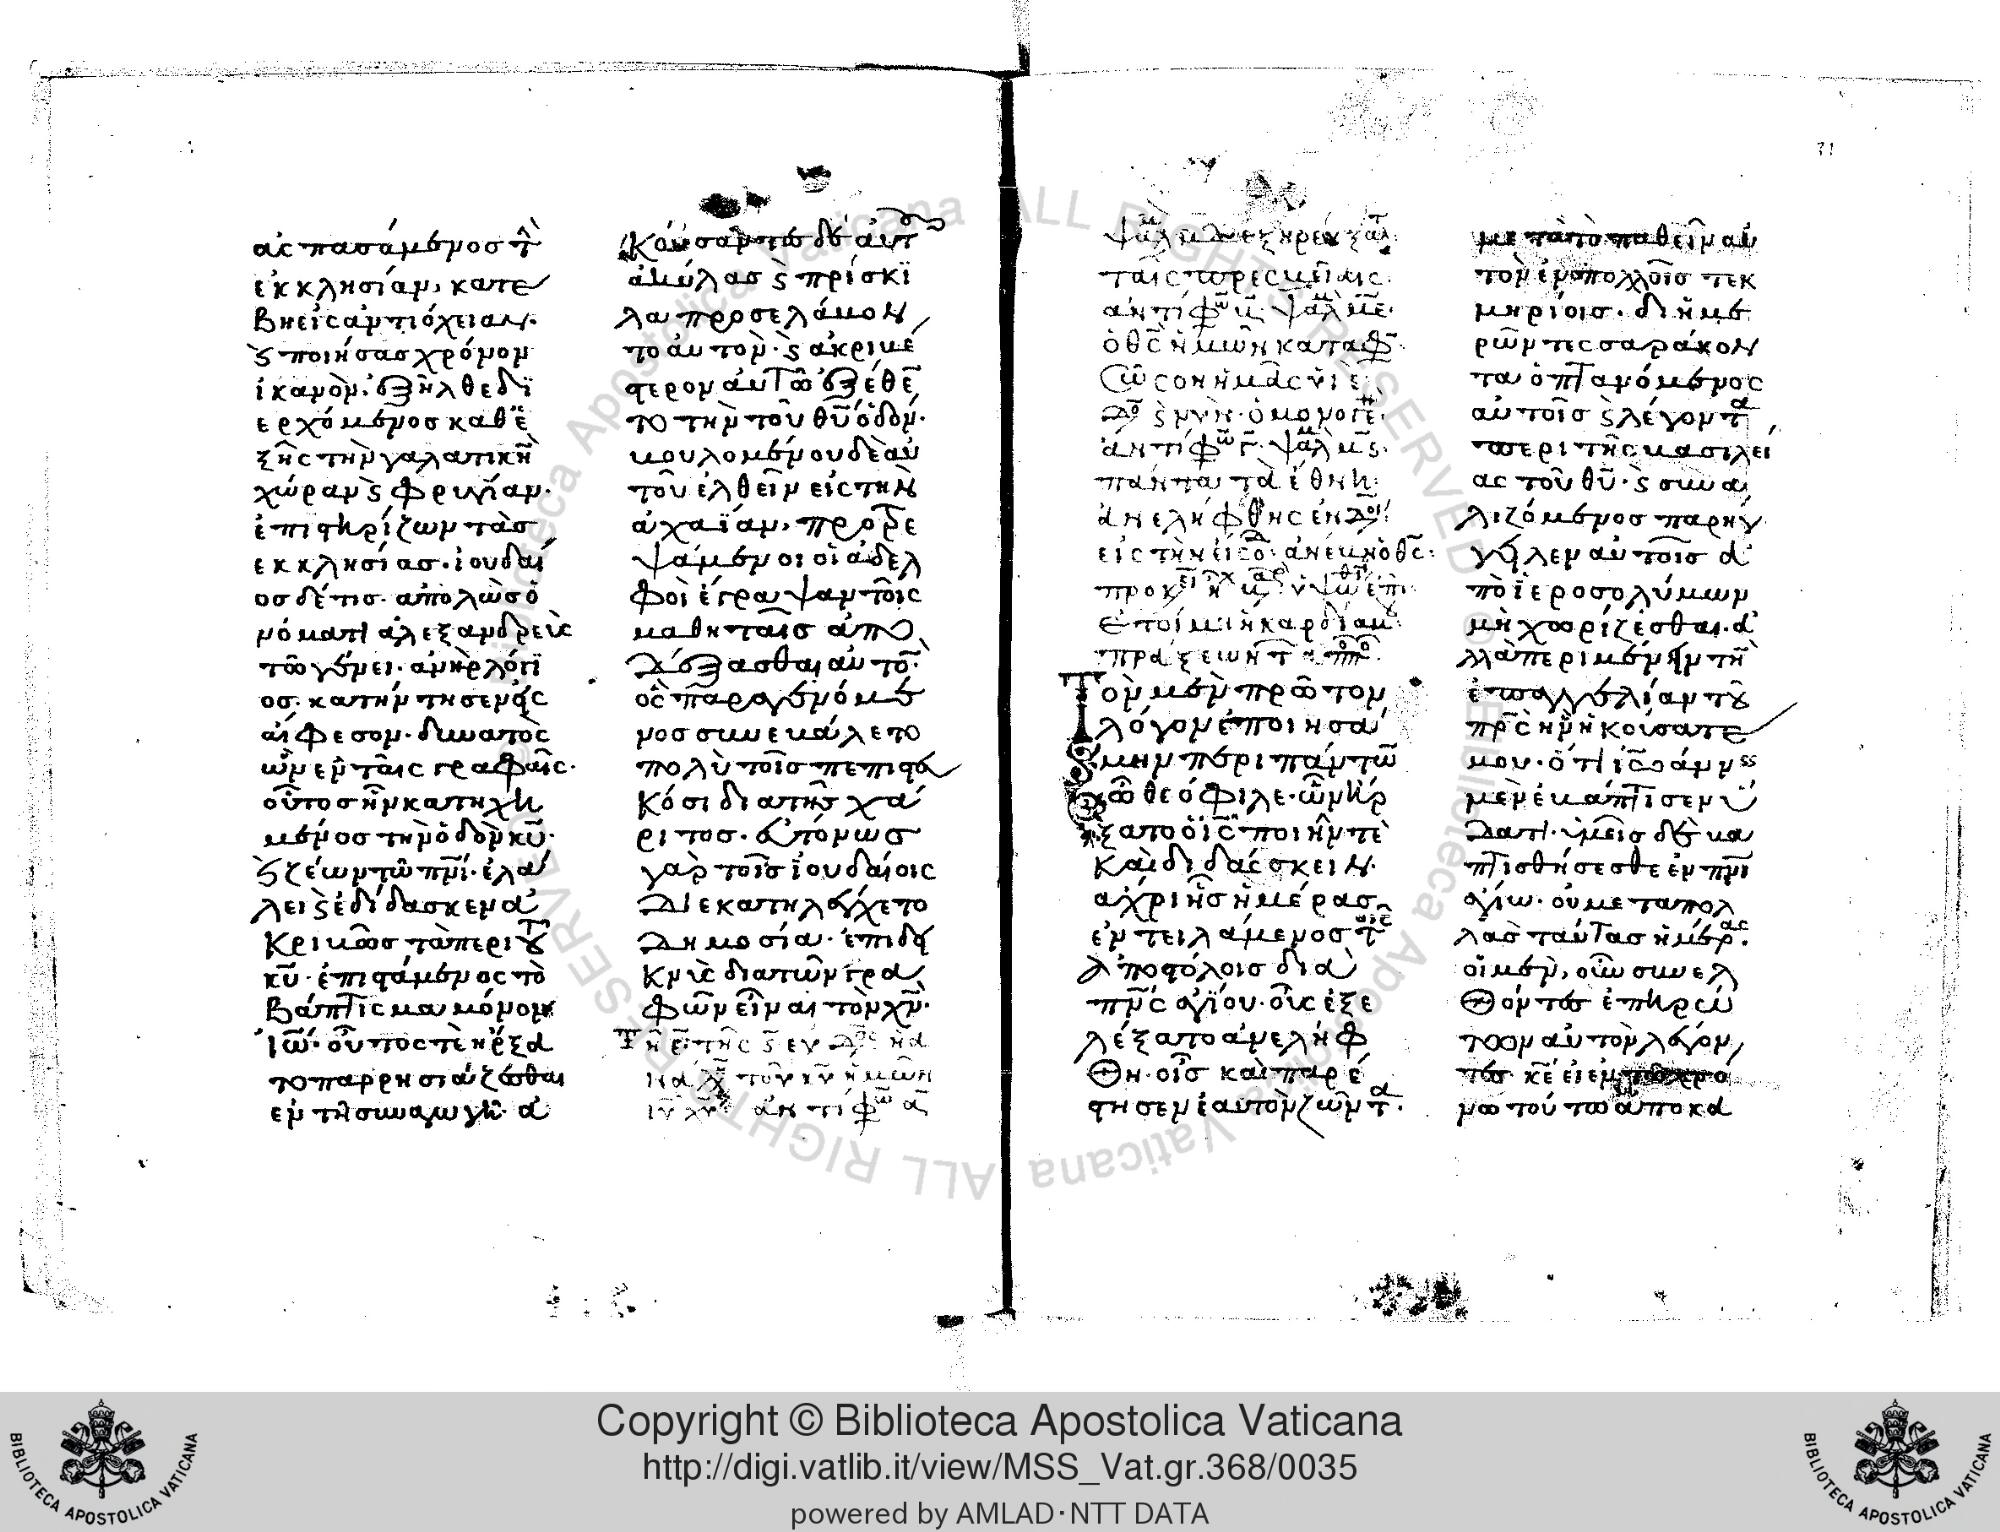 ἀσπασάμενος τὴν
ἐκκλησίαν, κατέ
βη εἰς ἀντιόχειαν·
ϗ ποιήσας χρόνον
ἱκανὸν, ἐξῆλθε δϊ
ερχόμενος καθε
ξῆς τὴν γαλατικὴν
χώραν ϗ φρυγίαν·
ἐπιστηρίζων τὰς
εκκλησίας· ἰουδαῖ
ος δέ τις· ἀπολλὼς ὀ
νόματι ἀλεξανδρεὺς
τῶ γένει· ἀνὴρ λόγϊ
ος· κατήντησεν εἰς
ἔφεσον· δυνατὸς
ὢν ἐν ταῖς γραφαῖς·
οὗτος ἦν κατηχη
μένος τὴν ὁδὸν κυ·
ϗ ζέων τῶ πνι· ἐλά
λει ϗ ἐδίδασκεν ἀ
κριβῶς τὰ περὶ τοῦ
κυ· ἐπιστάμενος τὸ
βάπτισμα μόνον
ἰω· οὗτός τε ἤρξα
το παρρησιάζεσθαι
ἐν τῆ συναγωγῆ· ἀ
κούσαντες δὲ αὐτοῦ
ἀκύλας ϗ πρίσκϊ
λα προσελάβον
το αὐτὸν· ϗ ἀκριβέ
στερον αὐτῶ ἐξέθεν
το τὴν τοῦ θυ ὁδόν·
βουλομένου δὲ αὐ
τοῦ ἐλθεῖν εἰς τὴν
ἀχαΐαν, προτρε
ψάμενοι οἱ ἀδελ
φοὶ ἔγραψαν τοῖς
μαθηταῖς ἀπο
δέξασθαι αὐτόν·
ὃς παραγενόμε
νος συνεβάλετο
πολὺ τοῖς πεπιστευ
κόσι διὰ τῆς χά
ριτος· εὐτόνως
γὰρ τοῖς ἰουδαίοις
διεκατηλέγχετο
δημοσία· ἐπιδει
κνὺς διὰ τῶν γρα
φῶν εἶναι τὸν χν·
ἀντιφω α
ταῖς πρεσβείαις
ἀντίφω
ὁ θς ἡμῶν καταφ
σῶσον ἡμᾶς υἱὲ
ϗ νῦν· ὁ μονογε
ἀντίφω γ· ψαλ
πάντα τὰ ἔθνη
ἀνελήφθης ἐν δο
εἰς τὴν εἴσο· ἀνέβη ὁ θς·
ετοίμη ἡ καρδία μου
πράξεων τ απο
Τὸν μὲν πρῶτον
λόγον ἐποιησά
μην περὶ πάντων
ὦ θεόφιλε· ὧν ἤρ
ξατο ὁ ις ποιεῖν τὲ
καὶ διδάσκειν·
ἄχρι ἧς ἡμέρας
ἐντειλάμενος τοῖς
ἀποστόλοις διὰ
πνς ἁγίου· οὓς ἐξε
λέξατο ἀνελήφ
θη· οἷς καὶ παρέ
στησεν ἑαυτὸν ζῶντα·
μετὰ τὸ παθεῖν αὐ
τὸν ἐν πολλοῖς τεκ
μηρίοις· δι ἡμε
ρῶν τεσσαράκον
τα ὀπτανόμενος
αὐτοῖς ϗ λέγων τὰ
περὶ τῆς βασιλεί
ας τοῦ θυ· ϗ συνα
λιζόμενος παρήγ
γειλεν αὐτοῖς ἀ
πὸ ϊεροσολύμων
μὴ χωρίζεσθαι· ἀ
λλὰ περιμένειν τὴν
ἐπαγγελίαν τοῦ
πρς ἣν ἠκούσατέ
μου· ὅτι ιω
μὲν ἐβάπτισεν ὕ
δατι· ὑμεῖς δὲ βα
πτισθήσεσθε ἐν πνι
ἁγίω· οὐ μετὰ πολ
λὰς ταύτας ἡμέρας·
οἱ μὲν, οὖν συνελ
θόντες ἐπηρώ
των αὐτὸν λέγον
τες· κε εἰ ἐν τῶ χρό
νω τούτω ἀποκα
31
Copyright © Biblioteca Apostolica Vaticana
http://digi.vatlib.it/view/MSS_Vat.gr.368/0035
powered by AMLAD·NTT DATA
BIBLIOTECA APOSTOLICA VATICANA
BIBLIOTECA APOSTOLICA VATICANA